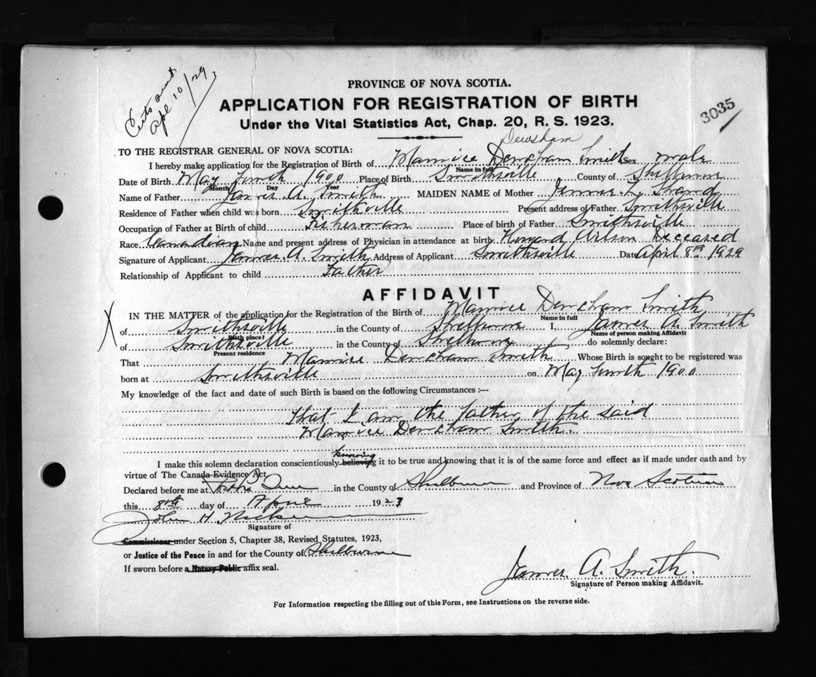 Certs sent
Apl 10/29
3035
PROVINCE OF NOVA SCOTIA.
APPLICATION FOR REGISTRATION OF BIRTH
Under the Vital Statistics Act, Chap. 20, R. S. 1923.
Dewsham
TO THE REGISTRAR GENERAL OF NOVA SCOTIA:
I hereby make application for the Registration of Birth of Maurice Smith Sex male
Name in full
Date of Birth May 1900 Place of Birth Smithsville County of Shelburne
Month Day Year
Name of Father James A. Smith MAIDEN NAME of Mother L.
Residence of Father when child was born Smithville Present address of Father Smithsville
Occupation of Father at Birth of child Fisherman Place of birth of Father Smithsville
Race Canadian Name and present address of Physician in attendance at birth Wilson Deceased
Signature of Applicant James A. Smith Address of Applicant Smithsville Date April 8th 1929
Relationship of Applicant to child Father
AFFIDAVIT
IN THE MATTER of the application for the Registration of the Birth of Maurice Smith
Name in full
of Smithsville in the County of Shelburne I, James A. Smith
Birth place Name of person making Affidavit
of Smithsville in the County of Shelburne do solemnly declare:
Present residence
That Maurice Smith Whose Birth is sought to be registered was
born at Smithsville on May 1900
My knowledge of the fact and date of such Birth is based on the following Circumstances:—
that I am the father of the said
Maurice Smith.
knowing
I make this solemn declaration conscientiously believing it to be true and knowing that it is of the same force and effect as if made under oath and by
virtue of The Canada Evidence Act.
Declared before me at in the County of Shelburne and Province of Nova Scotia
this 8th day of April 192
John H
Signature of
Commissioner under Section 5, Chapter 38, Revised Statutes, 1923,
or Justice of the Peace in and for the County of Shelburne
If sworn before a Notary Public affix seal.
James A. Smith.
Signature of Person making Affidavit.
For Information respecting the filling out of this Form, see Instructions on the reverse side.